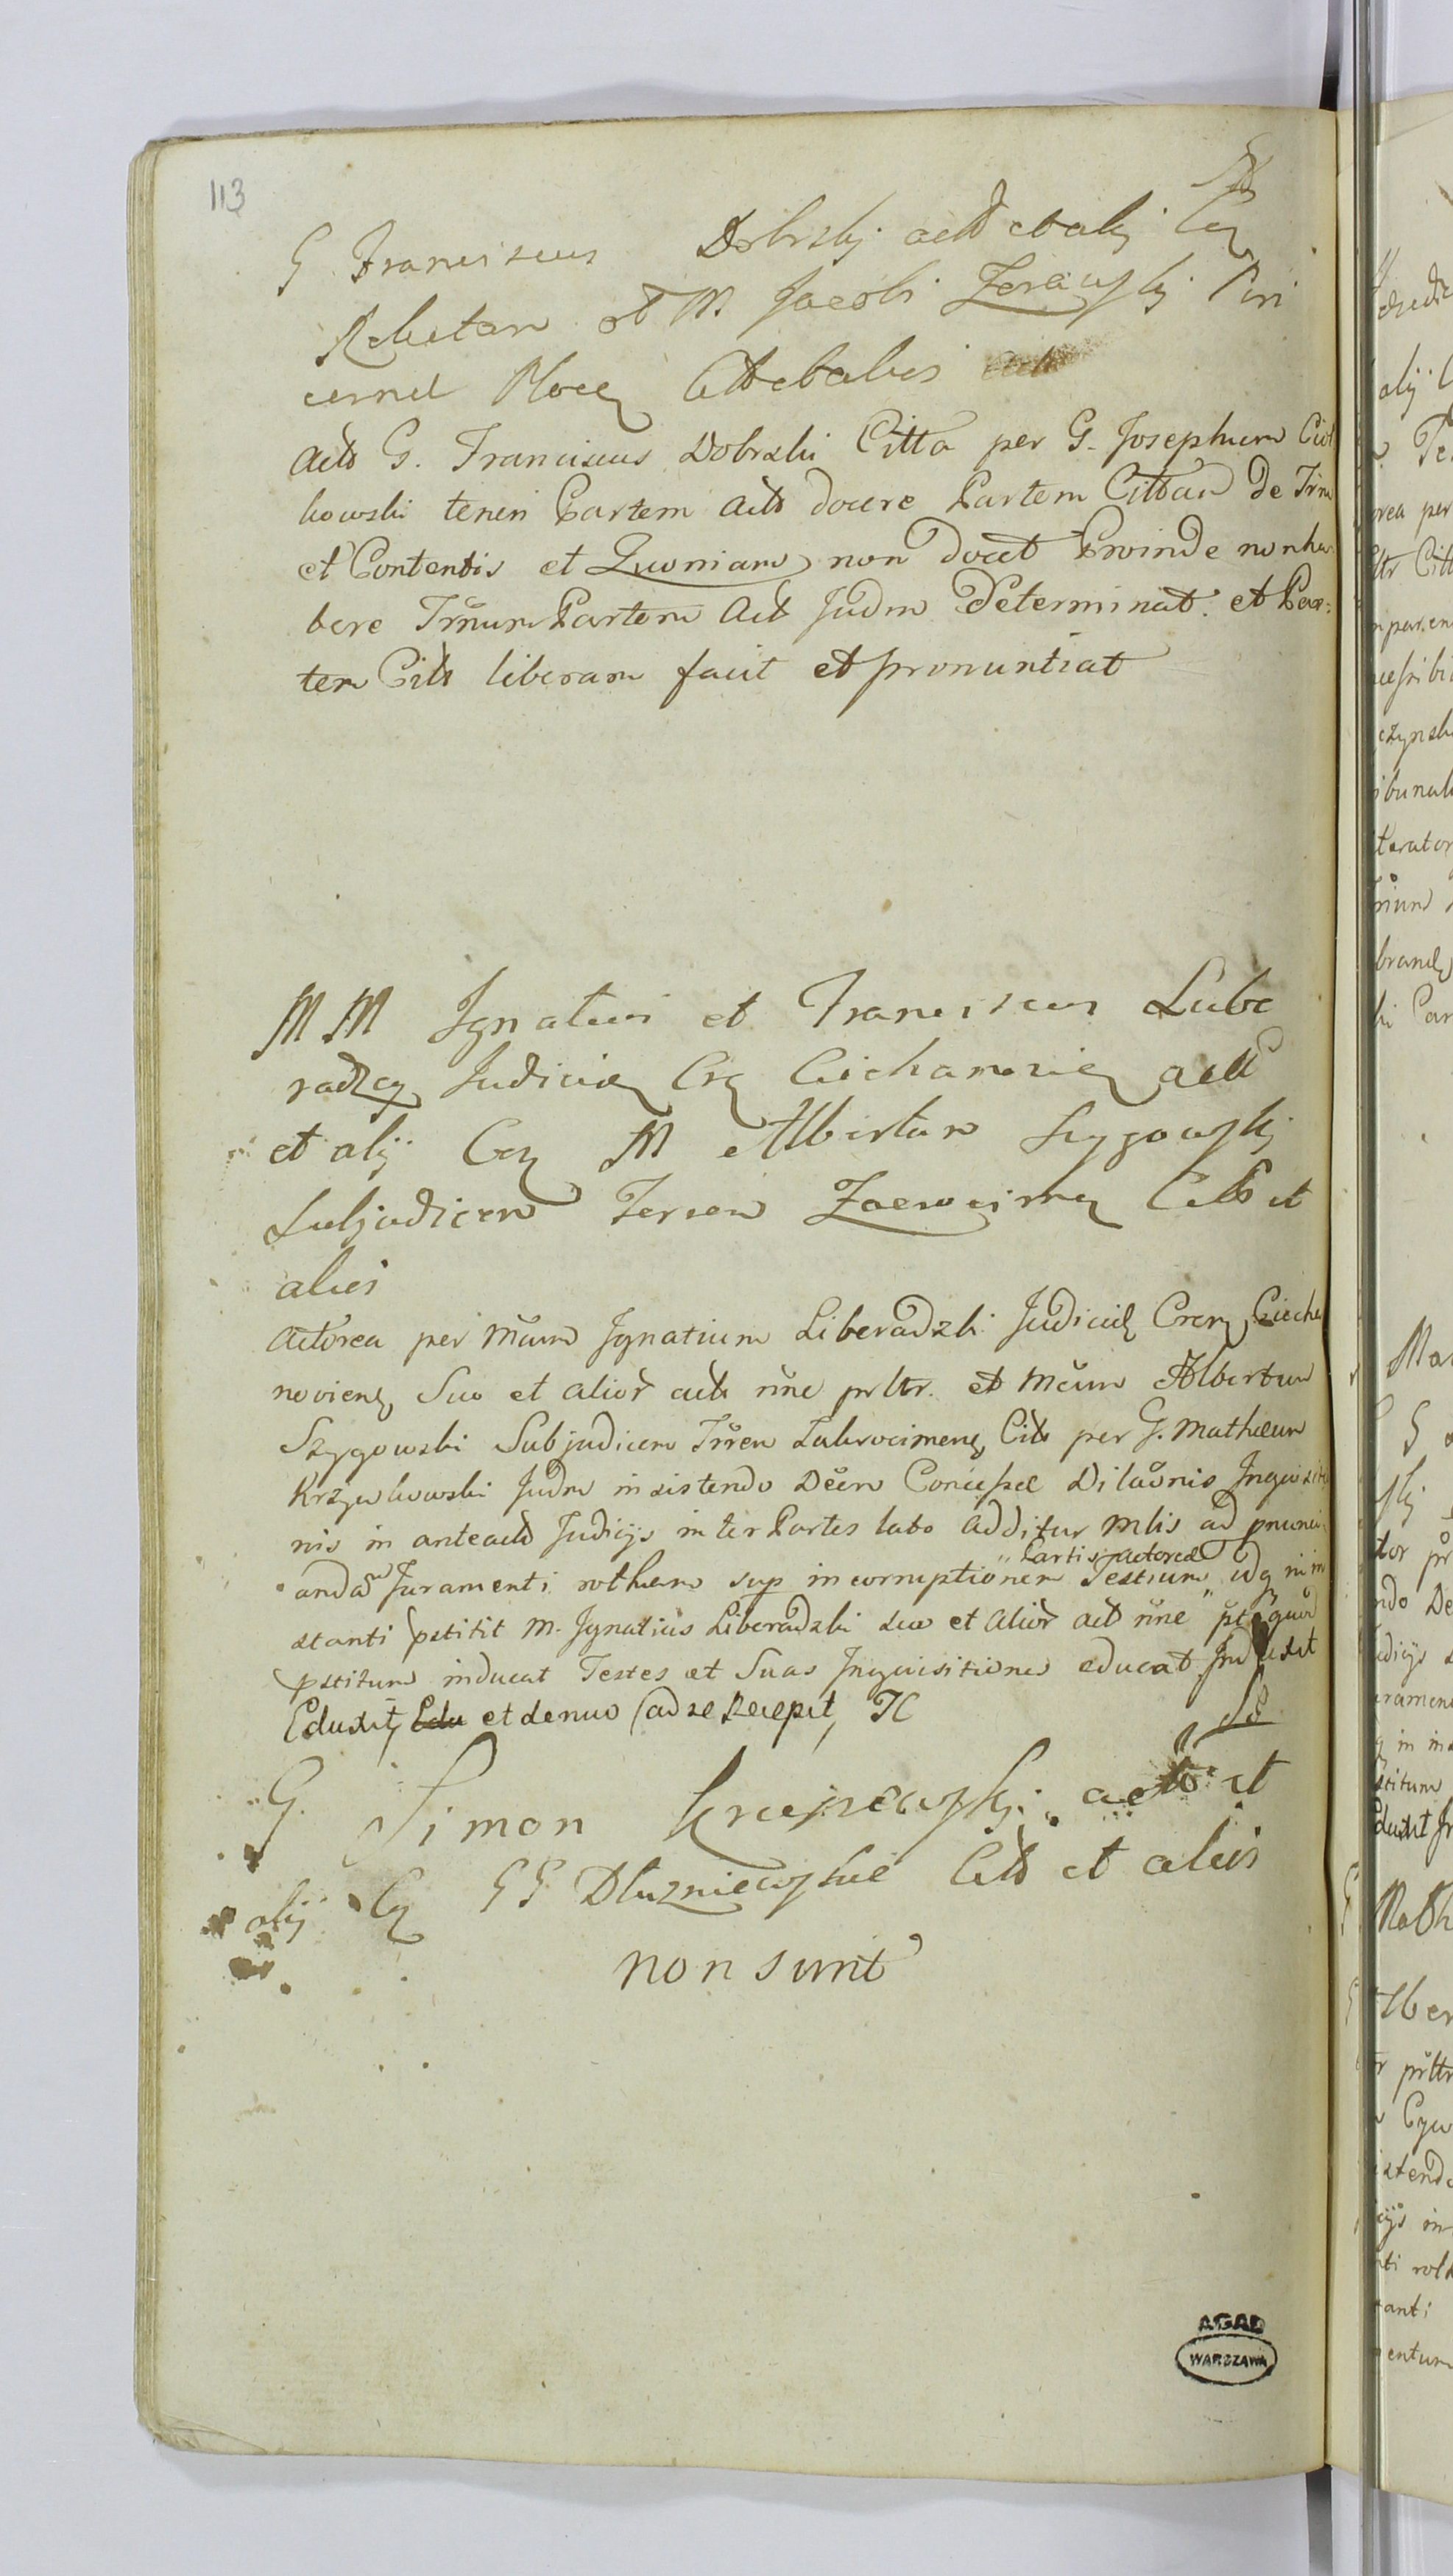 113
G Franciscus Dobrski actt et alij Cer
Rebetan et M Jacobi Zerawski Pin
cernel Ploce Citt et alios
Actt G. Franciscus Dobrski Citta per G. Josephum Ciot
kowski teneri Partem Actt docere Partem Cittam De Trm
et Contentis et Quoniam non docet Proinde non ha
bere Trmum Partem Act Judm Determinat et Par:
tem Citt liberam facit et pronuntiat
MM Ignatius et Franciscus Lube
radzcy Judicial Crz Ciechanovien actt
et alij Cer M Albertum Szygowski
Subjudicem Terren Zacrocimen Citt et
alios
Actorea per Mcum Ignatium Liberadzki Judicial Cren Ciecha
novien, Suo et alior actt nne prltr. et Mcum Albertum
Szygowski Subjudicem Trren Zakrocimen, Citt per G. Mathæum
Krzywkowski Judm insistendo Dcern Concessæ Dilaonis Inquisitio
nis in anteactt Judicijs inter Partes lato Additur Mlis ad pnunci
andã Juramenti rotham sup incorruptionem Testium " Partis Actoreæ " idq in in
stanti pstitit M. Ignatius Liberadzki suo et alior act nne " pt quod
pstitum inducat Testes et Suas Inquisitiones educat Induxit
Eduxit, Edu et denuo ad se Recepit,
G. Simon Krajewski actt et
alij Cer GG Dluzniewskie Citt et alios
non sunt
AGAD
WARSZAWA